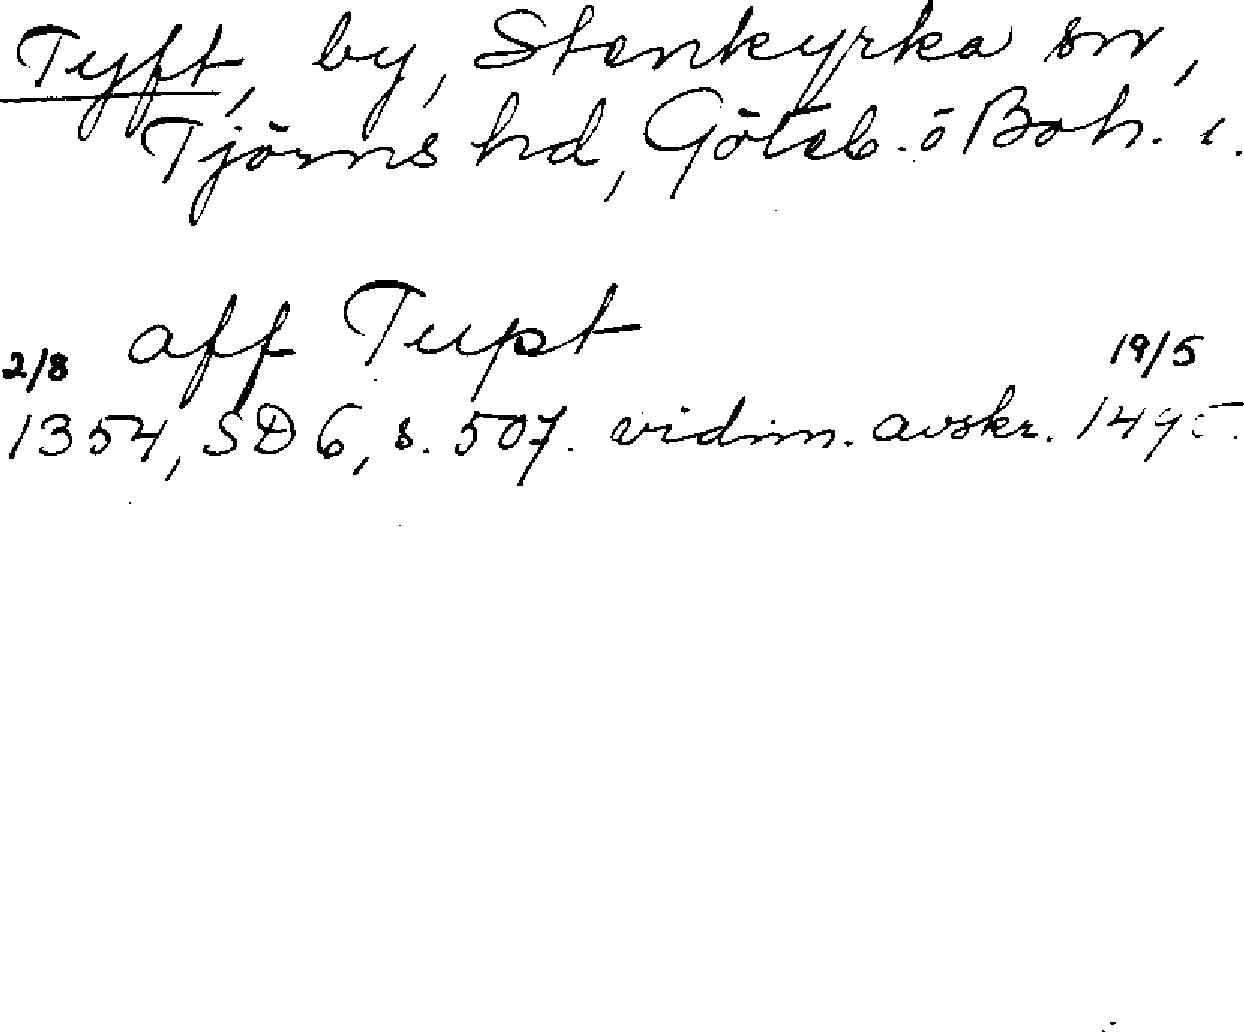 Tyft, by, Stenkyrka sn,
Tjörns hd, Göteb. o Boh. l.
aff Tupt
2/8 19/5
1354, SD 6, s. 507. vidim. avskr. 1495.